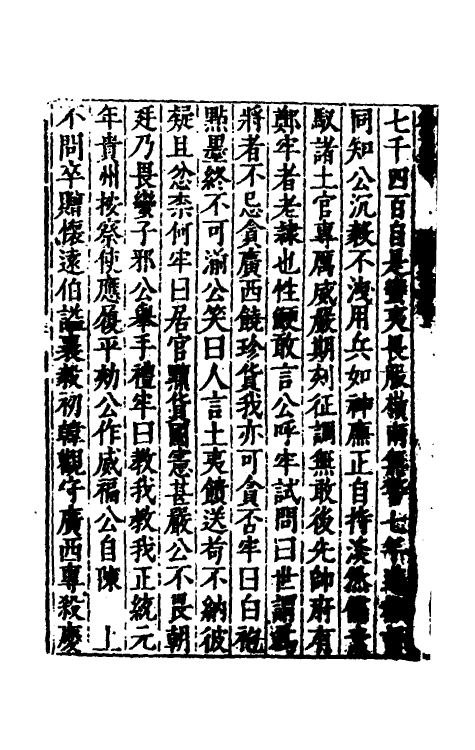 七千四百自是蠻夷畏服嶺南無警七年
同知公沉毅不洩用兵如神廉正自持淡然
馭諸土官專厲威嚴期刻征調無敢後先帥府有
鄭牢者老隷也性鯁敢言公呼牢試問曰世謂爲
將者不忌貪廣西饒珍貨我亦可貪否牢曰白袍
點墨終不可湔公笑曰人言土夷饋送苟不納彼
疑且忿柰何牢曰居官黷貨國憲甚嚴公不畏朝
廷乃畏蠻子邪公舉手禮牢曰教我教我正統元
年貴州按察使應履平劾公作威福公自陳　上
不問卒贈懷遠伯諡襄毅初韓觀守廣西專殺慶